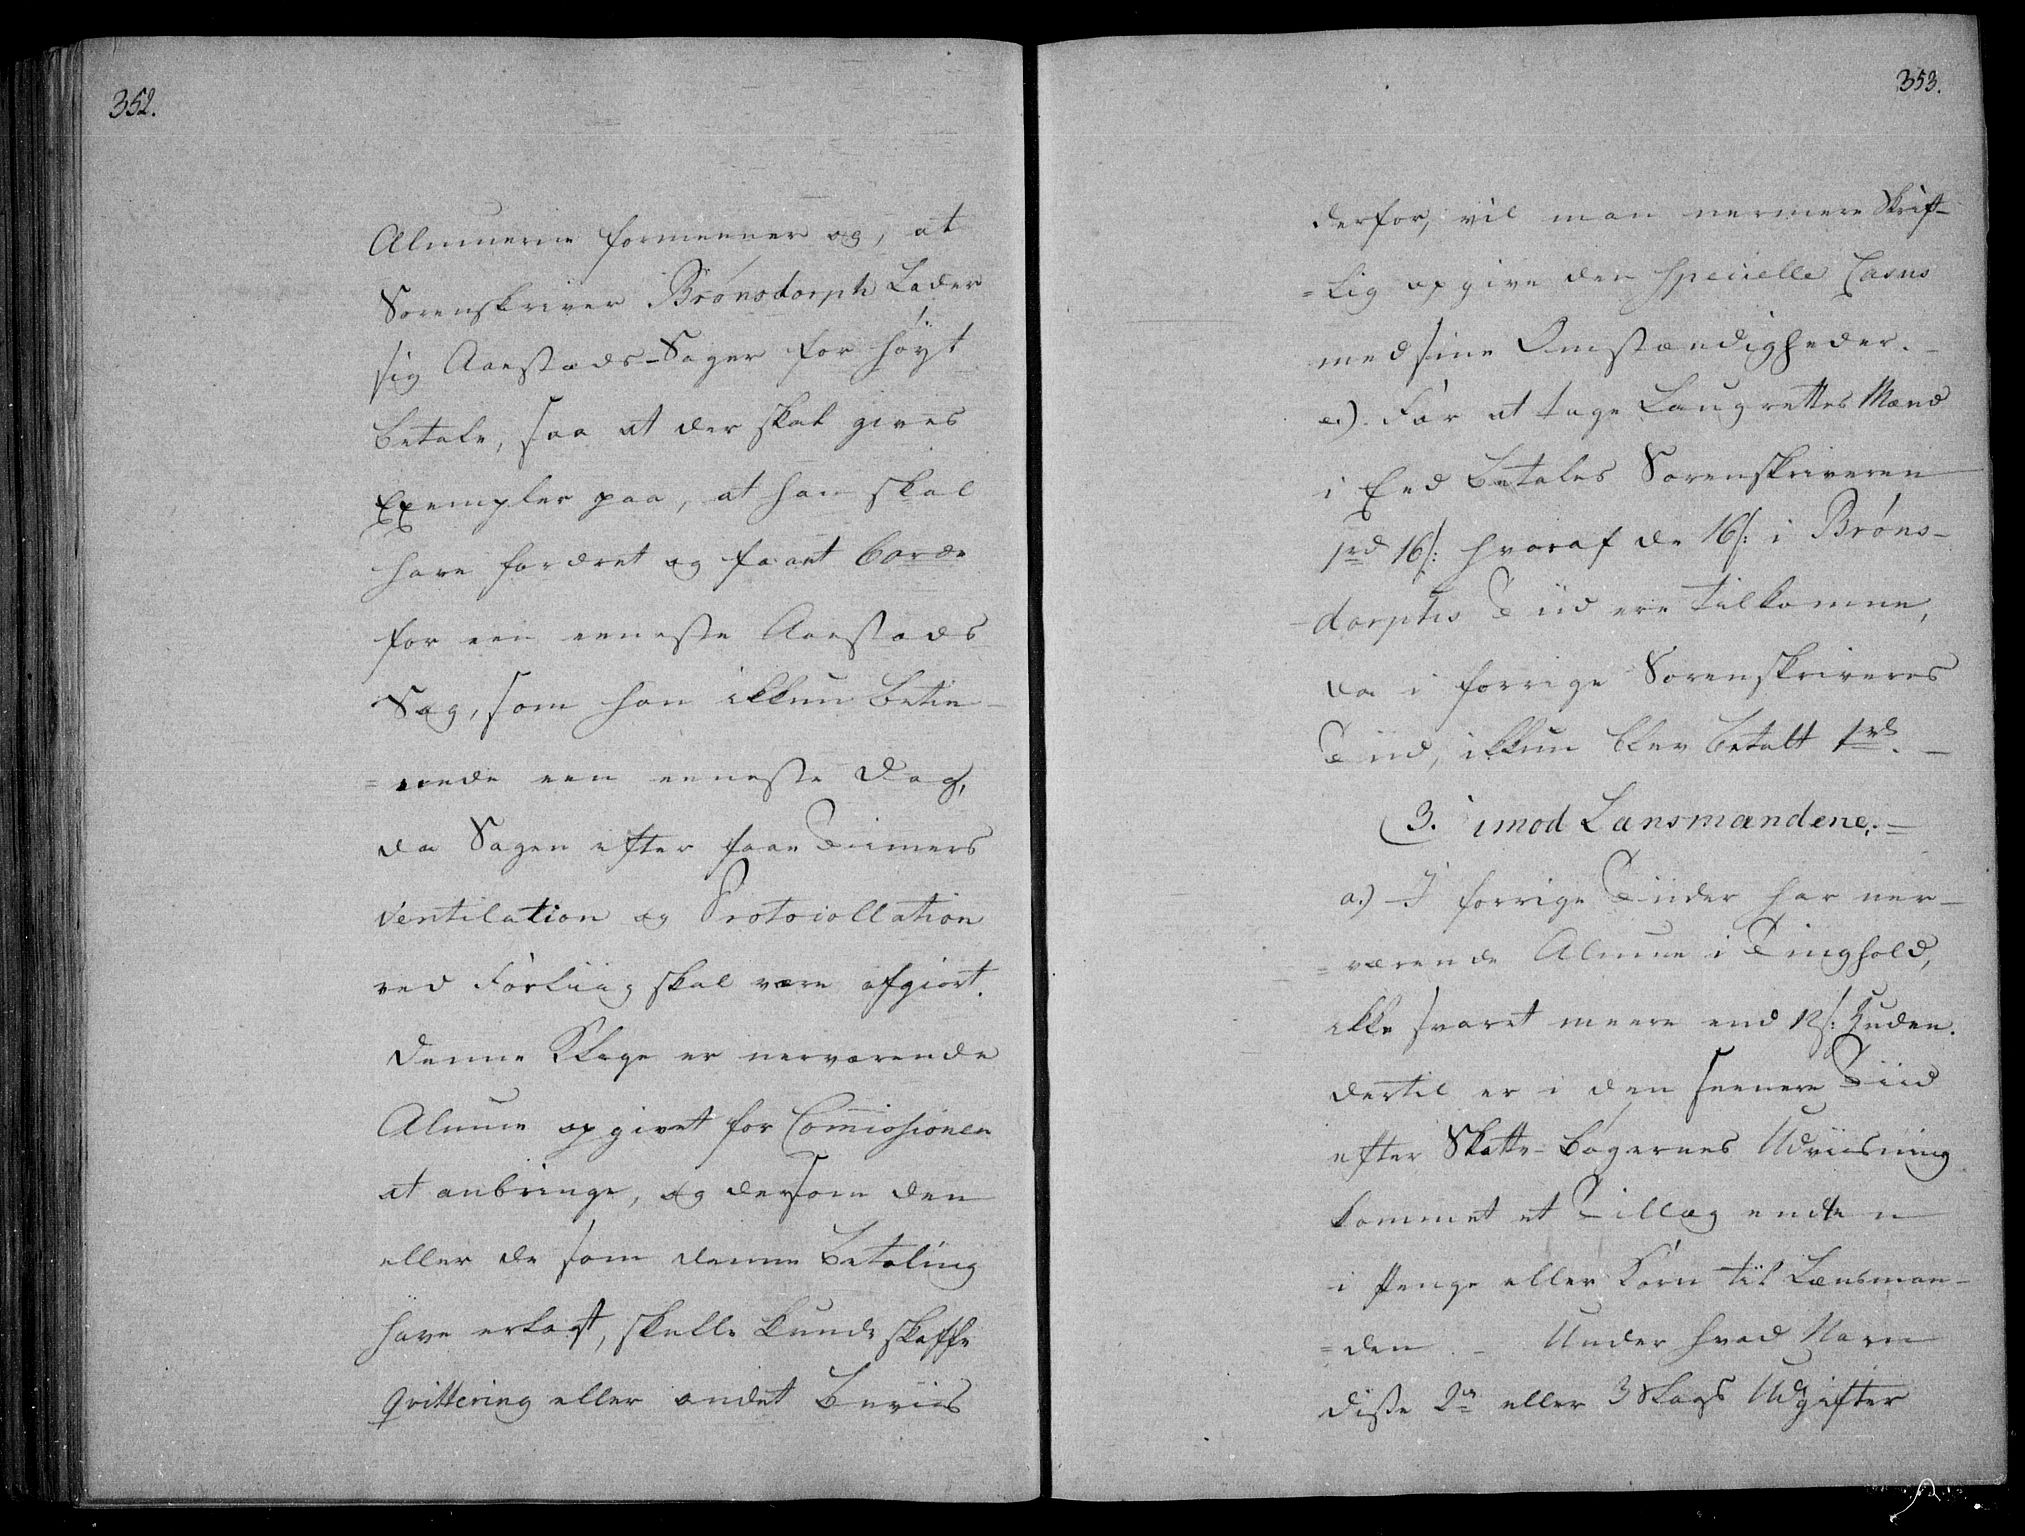 352.
Almuerne formeener og, at
Sorenskriver Brønsdorph Lader
sig Aaestæds-Sager for høyt
betale, saa at der skal gives
Exempler paa, at han skal
have fordret og faaet 60 rdr
for een eeneste Aaestæds
Sag, som han ikkun betie-
=nede een eeneste Dag,
da Sagen efter faae Tiimers
Ventilation og Protocollation
ved Forliig skal være afgiort.
Denne Klage er nerværende
Almue opgivet for Commissionen
at anbringe, og dersom den
eller de som denne Betaling
have erlagt, skulle kunde skaffe
Qvittering eller andet Beviis
353.
derfor, vil man nermere Skrift-
=lig opgive den specielle Casus
med sine Omstændigheder. –
e.) For at tage Laugrettes Mænd
i Eed betales Sorenskriveren
1rd 16/: hvoraf de 16/: i Brøns-
dorphs Tiid ere tilkomne,
da i forrige Sorenskriveres
Tiid, ikkun blev betalt 1rd. –
3. imod Lænsmændene. –
a.) I forrige Tiider har ner-
=værende Almue i Tinghold,
ikke svaret meere end 12/: Huden.
dertil er i den seenere Tiid
efter Skatte-bøgernes Udviisning
kommet et Tillæg enten
i Penge eller Korn til Lænsman-
=den. – Under hvad Navn
disse 2de eller 3 Slags Udgifter